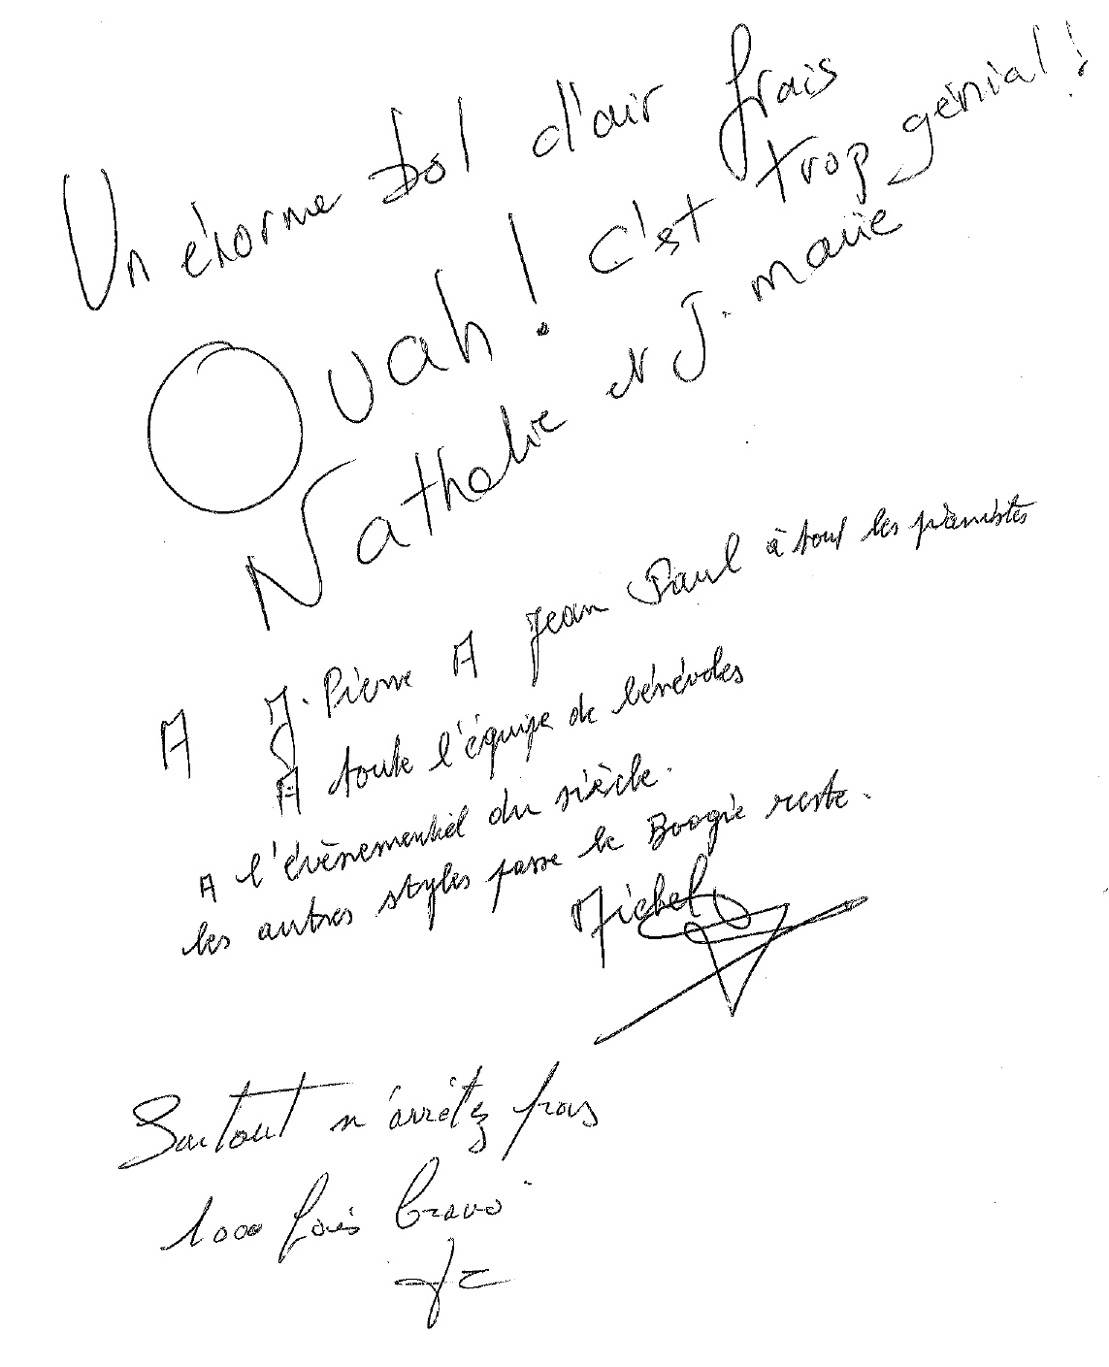 Un énorme bol d'air frais
Ouah ! C'est trop génial !
Nathalie et J. marie
A J. Pierre A Jean Paul à tout les pianistes
A toute l'équipe de bénévoles
A l'évènementiel du siècle.
les autres styles passe le Boogie reste.
Michel
Surtout n'arrêtez pas
1000 fois bravo